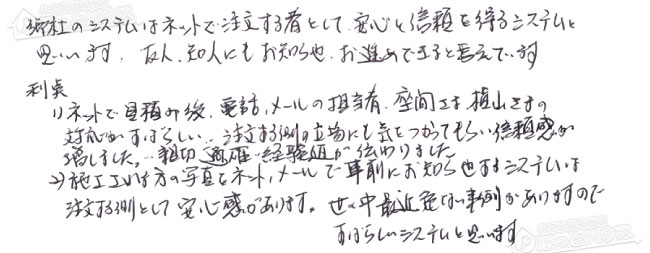 御社のシステムはネットで注文する者として、安心と信頼を得るシステムと
思います。友人、知人にもお知らせ、お進めできると言えています
利点
1)ネットで見積り後、電話、メールの担当者、座間さま、植山さまの
対応がすばらしい、注文する側の立場にも気をつかってもらい信頼感が
増しました。親切、適確、経験値が伝わりました
2)施工に来る方の写真をネット、メールで事前にお知らせするシステムは
注文する側として安心感があります。世の中最近危ない事例がありますので
すばらしいシステムと思います